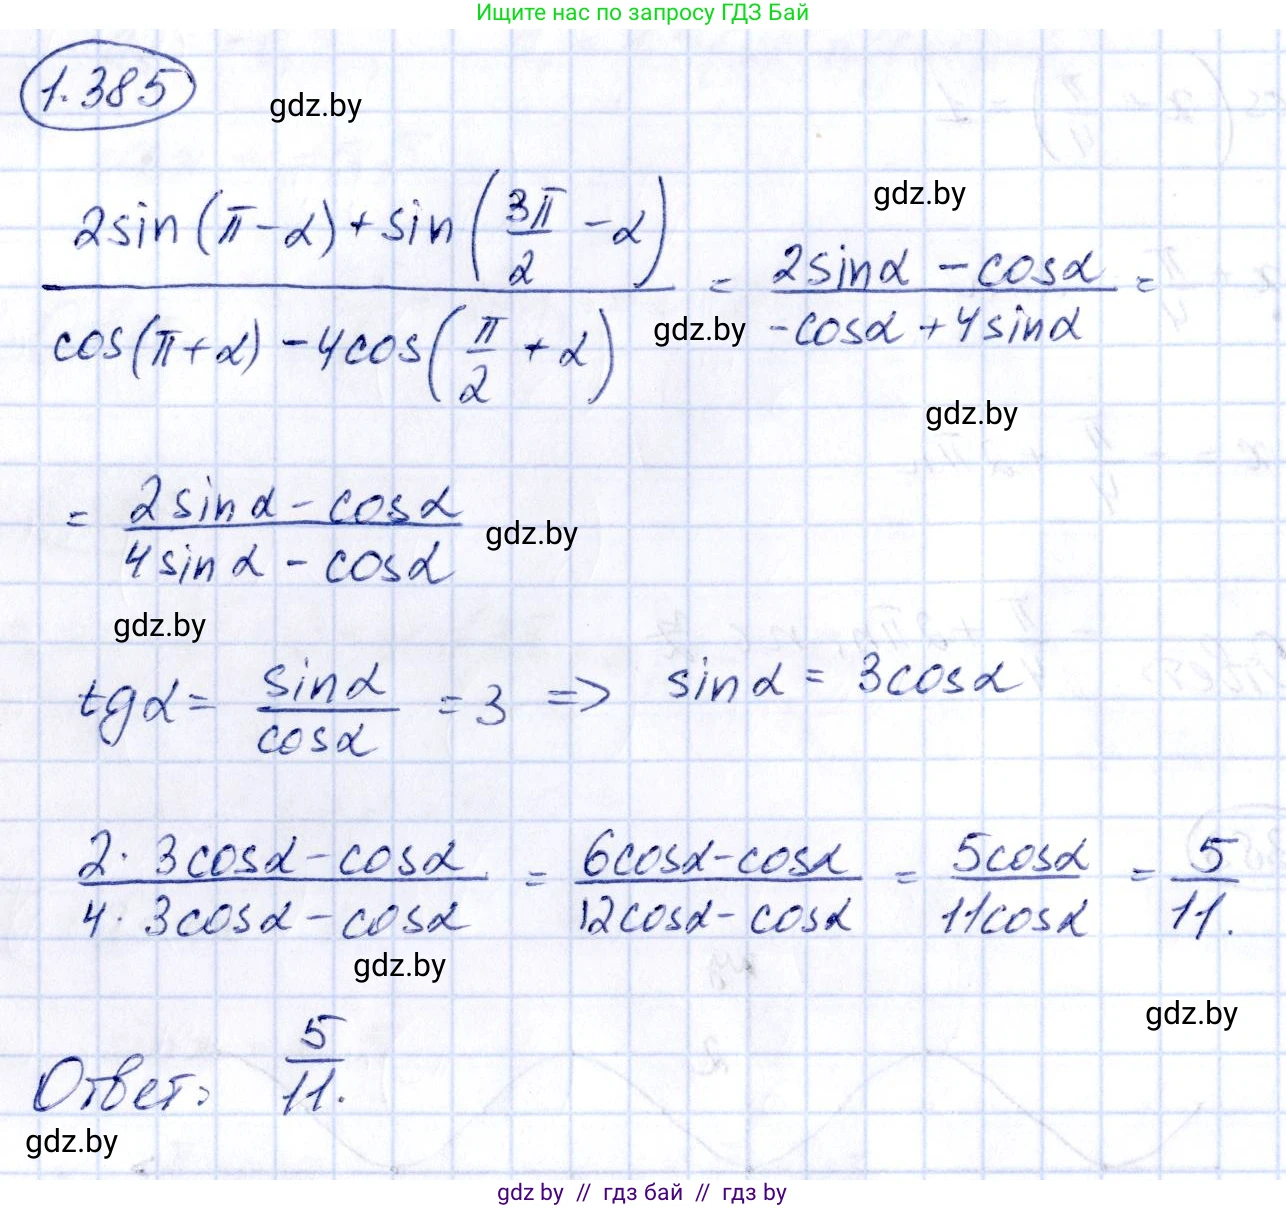 Ищите нас по запросу ГДЗ Бай
1.385
gdz.by
gdz.by
(2sin(π-α)+sin(3π/2 -α))/(cos(π+α)-4cos(π/2 +α)) = (2sinα -cosα)/(-cosα+4sinα) =
gdz.by
gdz.by
= (2sinα-cosα)/(4sinα-cosα)
gdz.by
gdz.by
tgα= sinα/cosα =3 => sinα= 3cosα
(2·3cosα-cosα)/(4·3cosα-cosα) = (6cosα-cosα)/(12cosα-cosα) = 5cosα/11cosα = 5/11.
gdz.by
gdz.by
Ответ: 5/11.
gdz.by
gdz by // гдз бай // гдз by